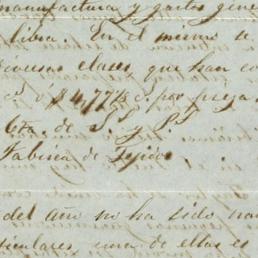 manufactura y gastos gene
libra. En el mismo se
diversas clases, que han co
c. ó $4,77⅛ c. por pieza.
Cta. de S. y P.
Fabrica de Tejidos
del año no ha sido
ticulares, una de ellas es